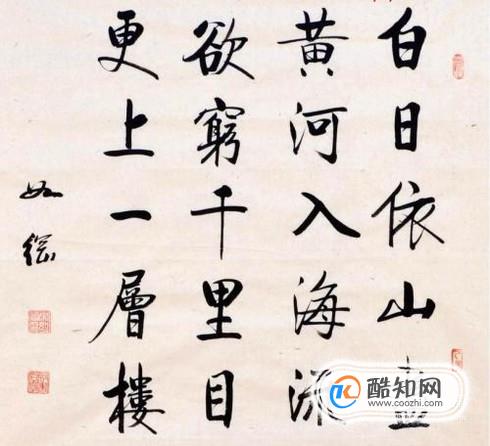 白日依山盡
黄河入海流
欲窮千里目
更上一層樓
酷知网
www.coozhi.com